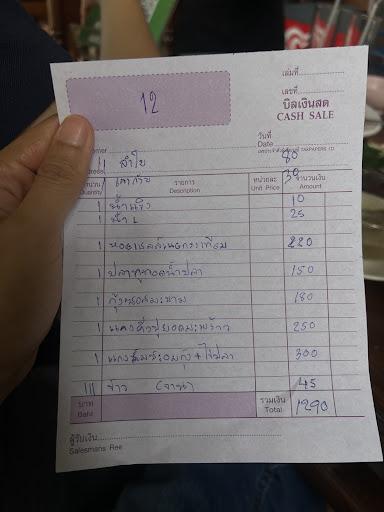 12
เล่มที่
เลขที่
บิลเงินสด
CASH SALE
วันที่
Date
TAXPAPERS I.D.
ลำไย 80
30
จำนวน Quantity รายการ Description หน่วยละ Unit Price จำนวนเงิน Amount
1 น้ำแข็ง 10
1 น้ำ L 25
1 หอยเชลล์เนยกระเทียม 220
1 ปลาทูทอดน้ำปลา 150
1 กุ้งซอสมะขาม 180
1 แกงคั่วปูยอดมะพร้าว 250
1 แกงส้มชะอมกุ้ง+ไข่ปลา 300
III ข้าว (จาน) 45
บาท Baht รวมเงิน Total 1290
ผู้รับเงิน
Salesmans Ree